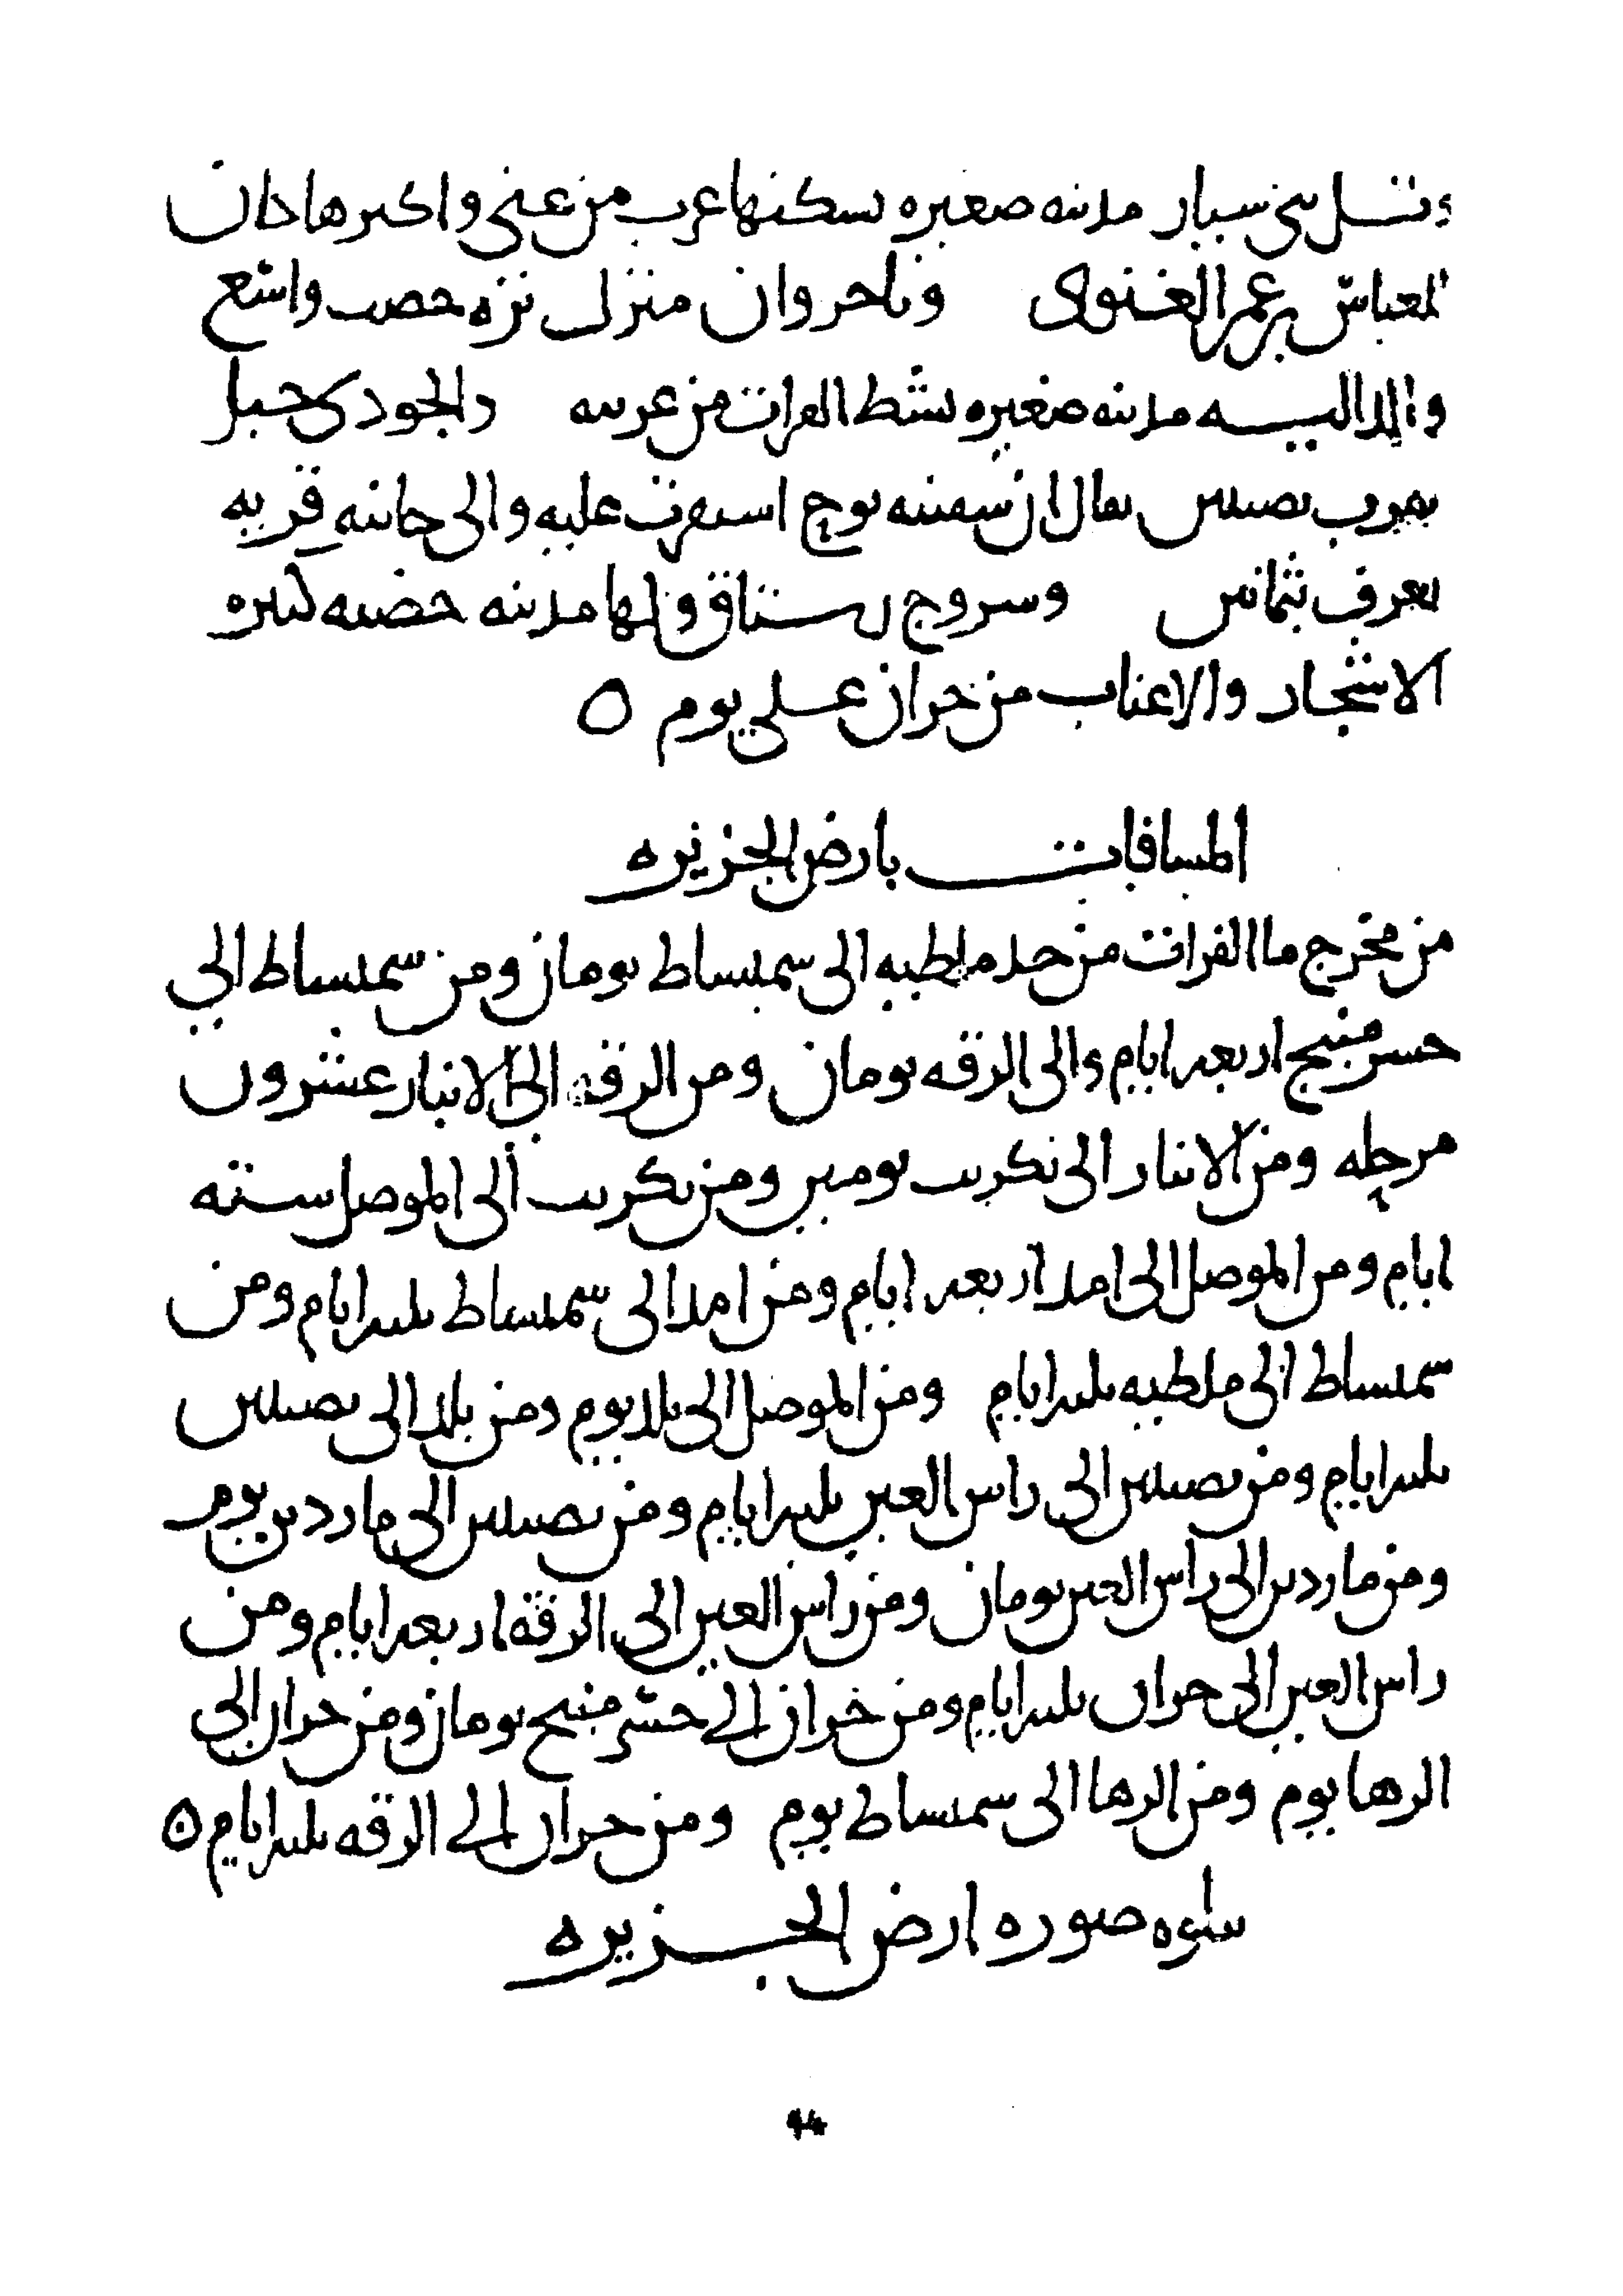 وتل بني سيار مدينة صغيره يسكنها عرب من غني واكبرها كان
للعباس بن عمر الغنوى وباجروان منزل نزه خصب واسع
والداليــه مدينه صغيره بشط الفرات من غربيه والجودى جبل
بقرب نصيبين يقال ان سفينه نوح استوت عليه والى جانبه قريه
تعرف بثمانين وسروج رستاق ولها مدينه خصبه كثيره
الاشجار والاعناب من حران على يوم ه
المسافات بارض الجزيره
من مخرج ما الفرات من حد ملطيه الى سميساط يومان ومن سميساط الى
جسر منبج اربعه ايام والى الرقه يومان ومن الرقه الى الانبار عشرون
مرحله ومن الانبار الى تكريت يومين ومن تكريت الى الموصل سته
ايام ومن الموصل الى امد اربعه ايام ومن امد الى سميساط ثلثه ايام ومن
سميساط الى ملطيه ثلثه ايام ومن الموصل الى بلد يوم ومن بلد الى نصيبين
ثلثه ايام ومن نصيبين الى راس العين ثلثه ايام ومن نصيبين الى ماردين يوم
ومن ماردين الى راس العين يومان ومن راس العين الى الرقه اربعه ايام ومن
راس العين الى حران ثلثه ايام ومن حران الى جسر منبج يومان ومن حران الى
الرها يوم ومن الرها الى سميساط يوم ومن حران الى الرقه ثلثه ايام ه
يتلوه صوره ارض الجزيره
94